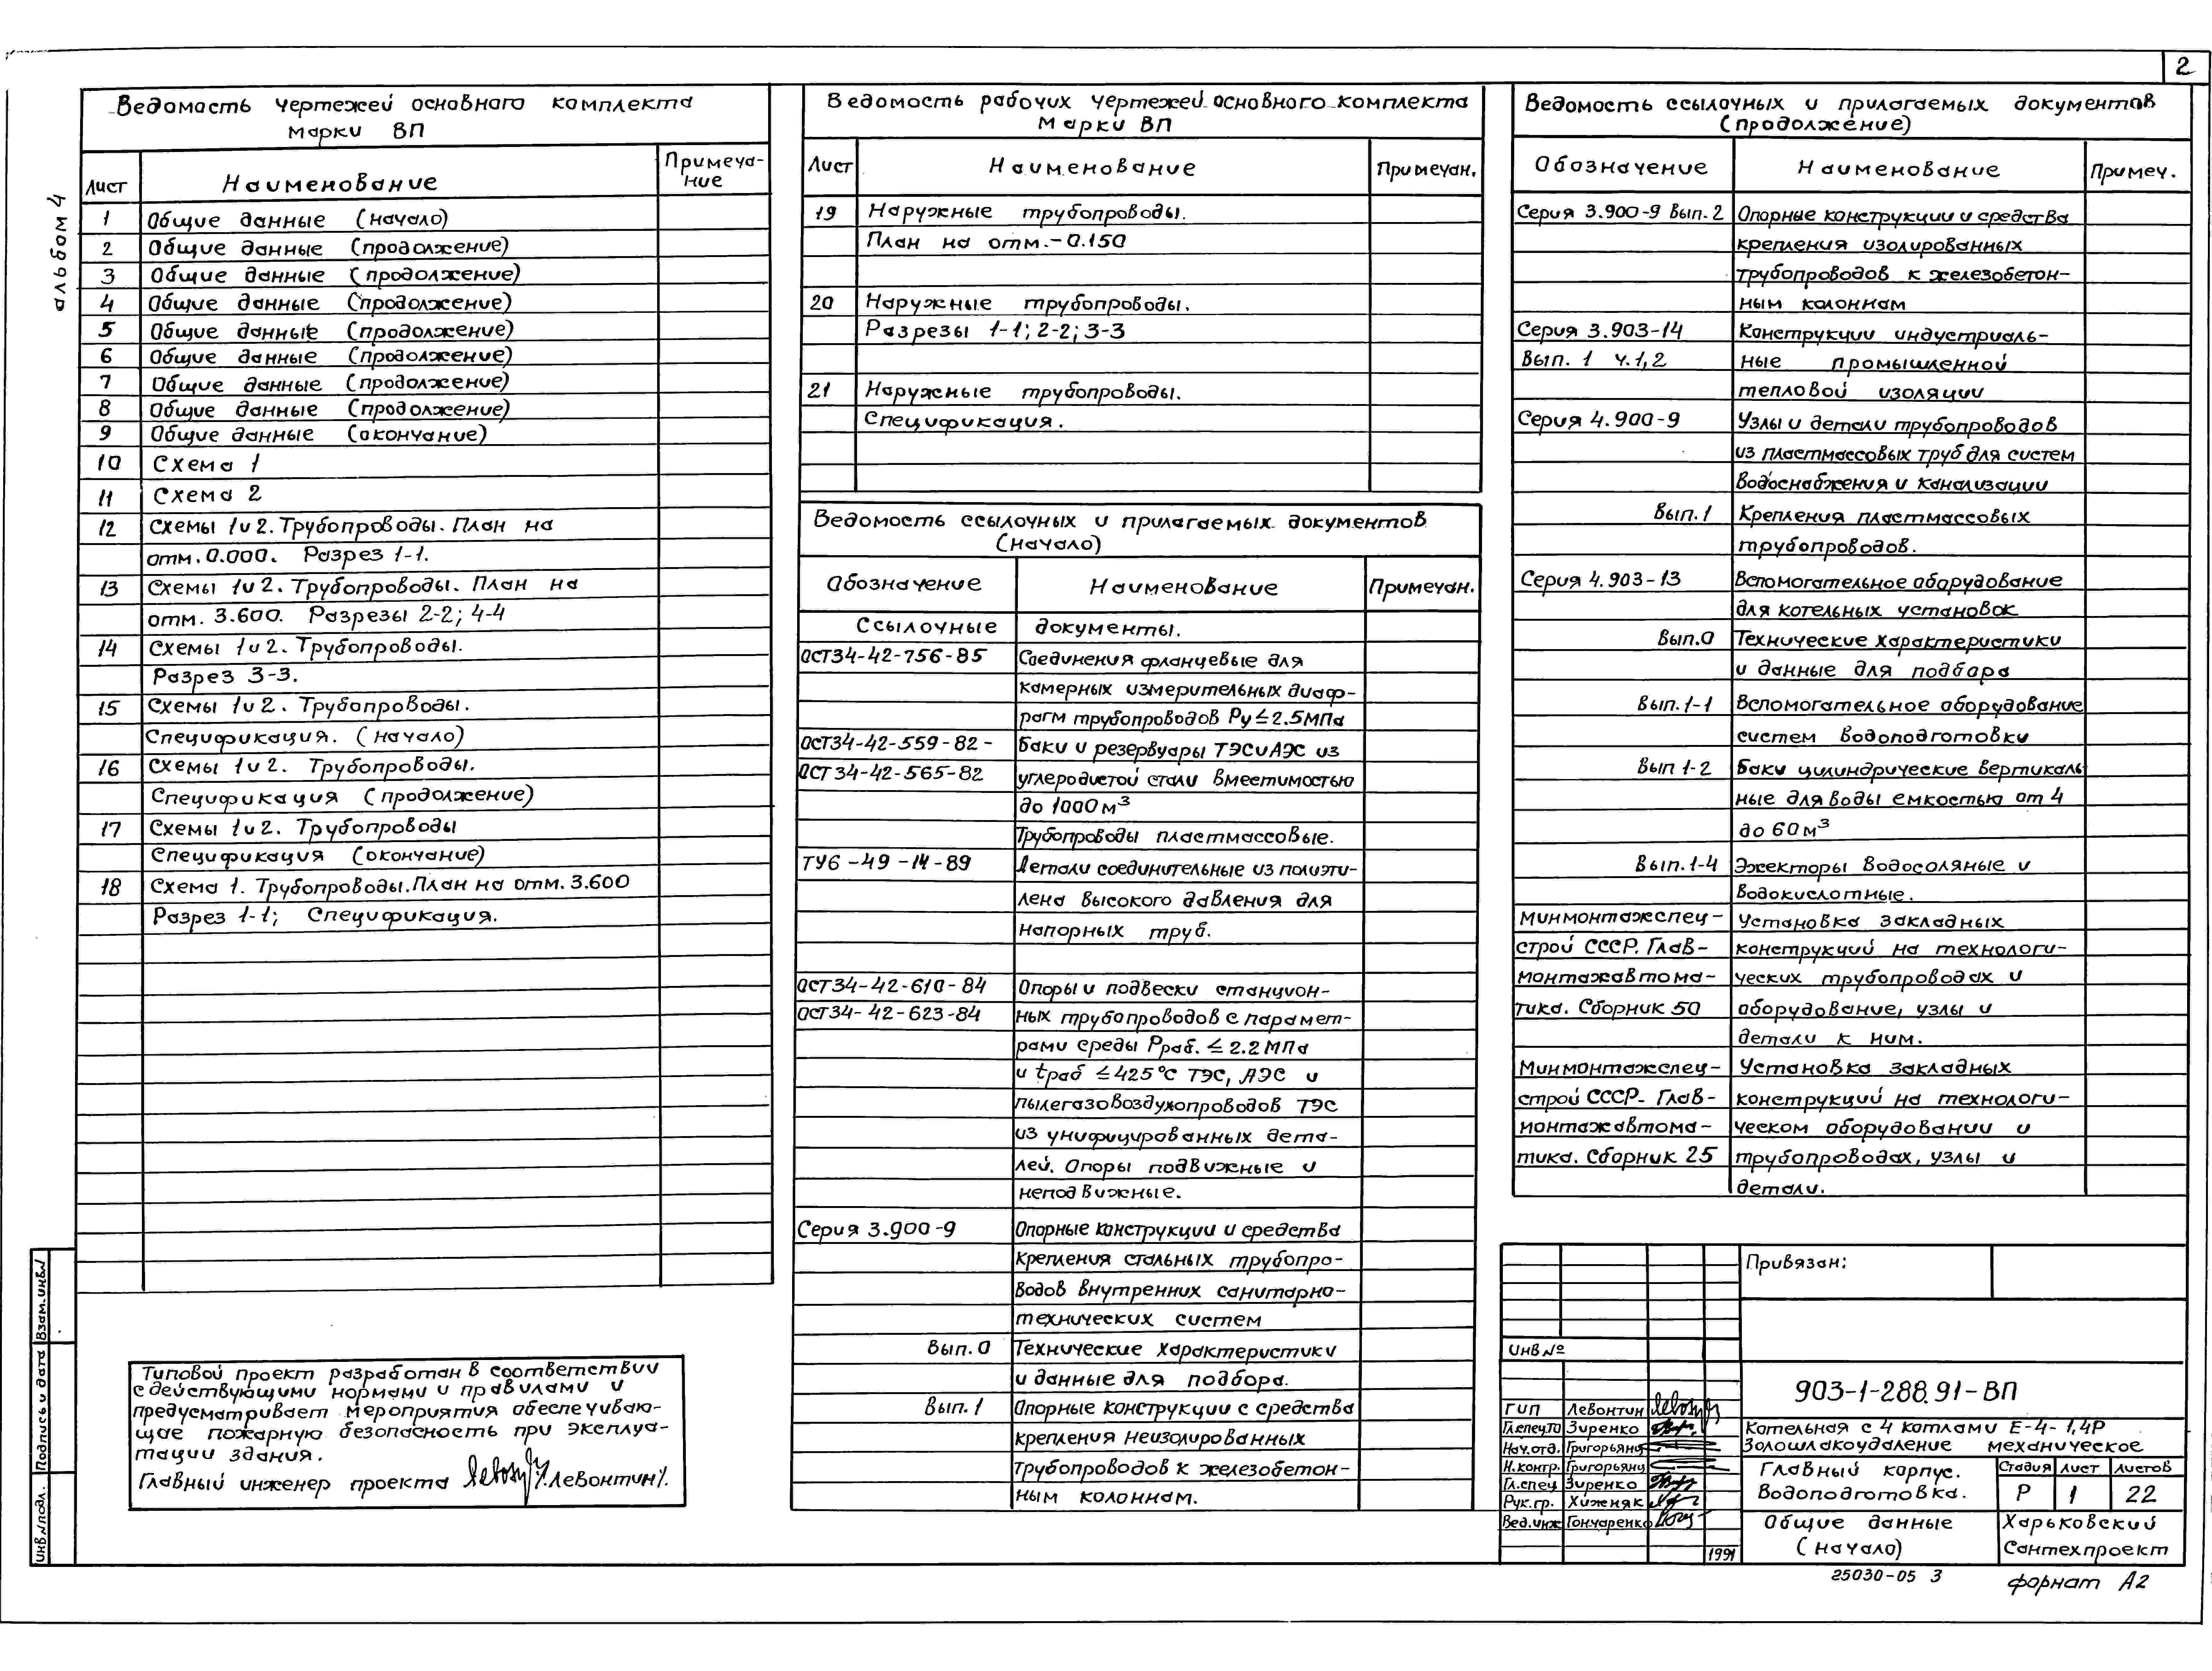 2
альбом 4
Ведомасть чертежей основного комплекта
марки ВП
Лист
Наименование
Примеча-
ние
1 Общие данные (начало)
2 Общие данные (продолжение)
3 Общие данные (продолжение)
4 Общие данные (продолжение)
5 Общие данные (продолжение)
6 Общие данные (продолжение)
7 Общие данные (продолжение)
8 Общие данные (продолжение)
9 Общие данные (окончание)
10 Схема 1
11 Схема 2
12 Схемы 1и2. Трубопроводы. План на
отм. 0.000. Разрез 1-1.
13 Схемы 1и2. Трубопроводы. План на
отм. 3.600. Разрезы 2-2; 4-4
14 Схемы 1и2. Трубопроводы.
Разрез 3-3.
15 Схемы 1и2. Трубопроводы.
Спецификация. (начало)
16 Схемы 1и2. Трубопроводы.
Спецификация (продолжение)
17 Схемы 1и2. Трубопроводы
Спецификация (окончание)
18 Схема 1. Трубопроводы. План на отм. 3.600
Разрез 1-1; Спецификация.
Типовой проект разработан в соответствии
с действующими нормами и правилами и
предусматривает мероприятия обеспечиваю-
щие пожарную безопасность при эксплуа-
тации здания.
Главный инженер проекта /Левонтин/.
Ведомость рабочих чертежей основного комплекта
марки ВП
Лист Наименование Примечан.
19 Наружные трубопроводы.
План на отм. -0.150
20 Наружные трубопроводы.
Разрезы 1-1; 2-2; 3-3
21 Наружные трубопроводы.
Спецификация.
Ведомость ссылочных и прилагаемых документов
(начало)
Обозначение Наименование Примечан.
Ссылочные документы.
ОСТ34-42-756-85 Соединения фланцевые для
камерных измерительных диаф-
рагм трубопроводов Ру≤2.5МПа
ОСТ34-42-559-82- Баки и резервуары ТЭСиАЭС из
ОСТ34-42-565-82 углеродистой стали вместимостью
до 1000м³
Трубопроводы пластмассовые.
ТУ6-49-14-89 Детали соединительные из полиэти-
лена высокого давления для
напорных труб.
ОСТ34-42-610-84 Опоры и подвески станцион-
ОСТ34-42-623-84 ных трубопроводов с парамет-
рами среды Рраб. ≤ 2.2МПа
и tраб ≤425°С ТЭС, АЭС и
пылегазовоздухопроводов ТЭС
из унифицированных дета-
лей. Опоры подвижные и
неподвижные.
Серия 3.900-9 Опорные конструкции и средства
крепления стальных трубопро-
водов внутренних санитарно-
технических систем
Вып. 0 Технические характеристики
и данные для подбора.
Вып. 1 Опорные конструкции с средства
крепления неизолированных
трубопроводов к железобетон-
ным колоннам.
Ведомость ссылочных и прилагаемых документов
(продолжение)
Обозначение Наименование Примеч.
Серия 3.900-9 Вып. 2 Опорные конструкции и средства
крепления изолированных
трубопроводов к железобетон-
ным колоннам
Серия 3.903-14 Конструкции индустриаль-
Вып. 1 ч.1,2 ные промышленной
тепловой изоляции
Серия 4.900-9 Узлы и детали трубопроводов
из пластмассовых труб для систем
водоснабжения и канализации
Вып. 1 Крепления пластмассовых
трубопроводов.
Серия 4.903-13 Вспомогательное оборудование
для котельных установок
Вып.0 Технические характеристики
и данные для подбора
Вып.1-1 Вспомогательное оборудование
систем водоподготовки
Вып 1-2 Баки цилиндрические вертикаль
ные для воды емкостью от 4
до 60м³
Вып.1-4 Эжекторы водосоляные и
водокислотные.
Минмонтажспец- Установка закладных
строй СССР. Глав- конструкций на технологи-
монтажавтома- ческих трубопроводах и
тика. Сборник 50 оборудование, узлы и
детали к ним.
Минмонтажспец- Установка закладных
строй СССР- Глав- конструкций на технологи-
монтажавтома- ческом оборудовании и
тика. Сборник 25 трубопроводах, узлы и
детали.
Привязан:
Инв №
903-1-288.91-ВП
ГИП Левонтин
Гл.спец.ТО Зиренко
Нач.отд. Григорьянц
Н.контр. Григорьянц
Гл.спец Зиренко
Рук.гр. Хижняк
Вед.инж Гончаренко
1991
Котельная с 4 котлами Е-4-1,4Р
Золошлакоудаление механическое
Главный корпус.
Водоподготовка.
Стадия Лист Листов
Р 1 22
Общие данные
(начало)
Харьковский
Сантехпроект
25030-05 3
формат А2
Инв № подл. Подпись и дата Взам. инв №